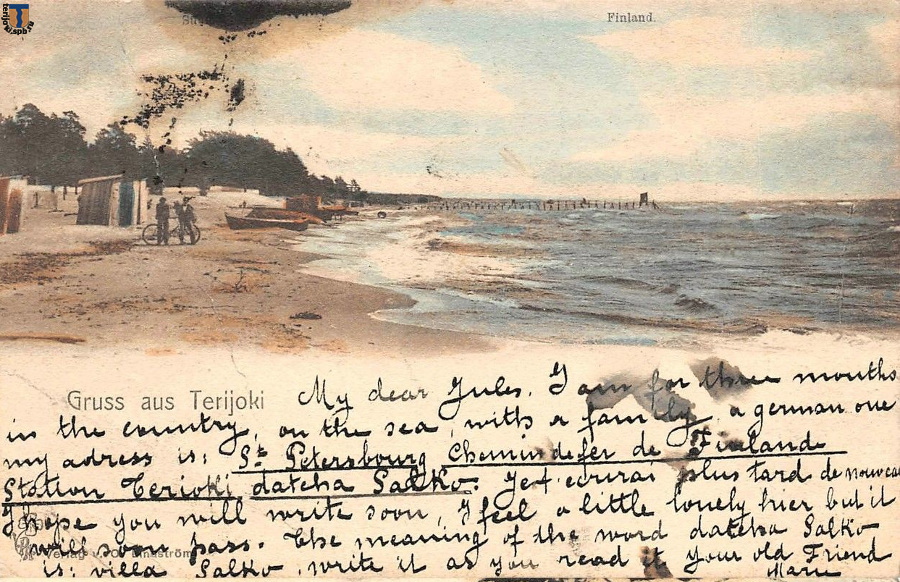 terijoki.spb.ru
Finland.
Gruss aus Terijoki
My dear Jules. I am for three mouths
in the country, on the sea, with a family, a german one
my adress is: St. Petersbourg Chemin de fer de Finlande
Station Terioki datcha Salko. Je t'écrirai plus tard de nouveau
I hope you will write soon, I feel a little lonely hier but it
will soon pass. The meaning of the word datcha Salko
is: villa Salko, write it as you read it Your old Friend
Marie
Verlag v.